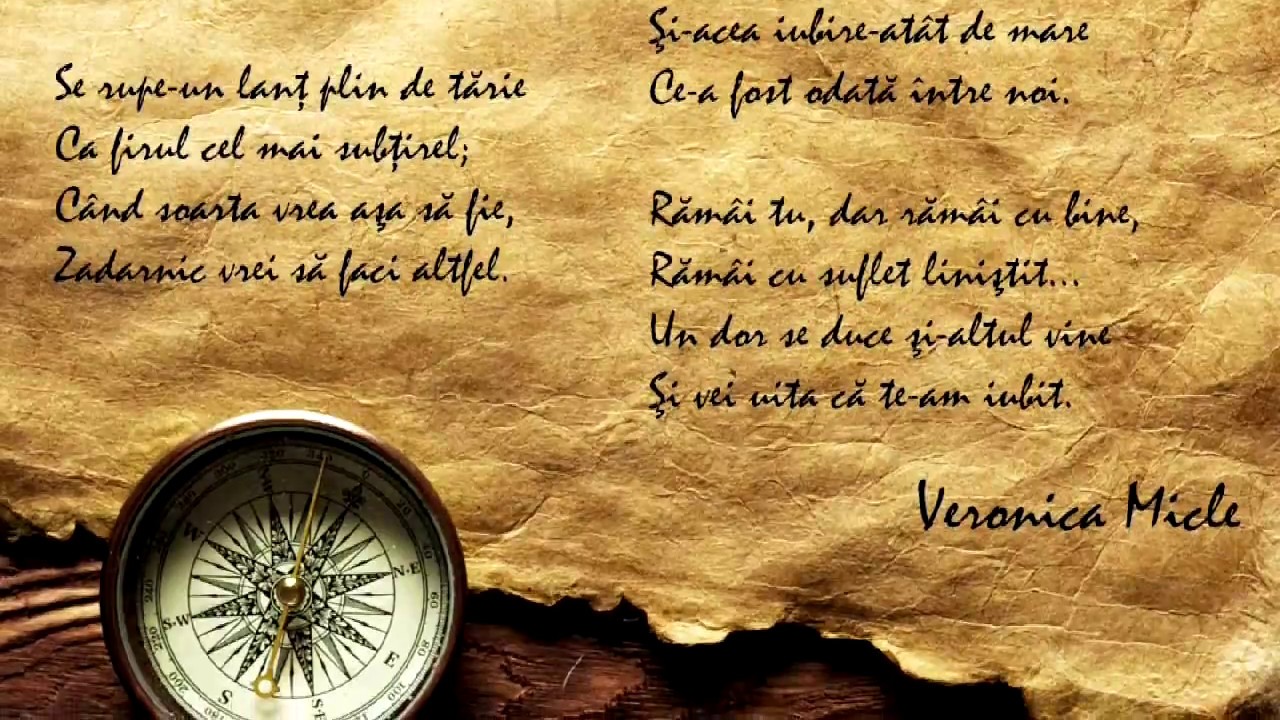 Se rupe-un lanţ plin de tărie
Ca firul cel mai subţirel;
Când soarta vrea aşa să fie,
Zadarnic vrei să faci altfel.
Şi-acea iubire-atât de mare
Ce-a fost odată între noi.
Rămâi tu, dar rămâi cu bine,
Rămâi cu suflet liniştit...
Un dor se duce şi-altul vine
Şi vei uita că te-am iubit.
Veronica Micle
N-E
E
S
S-W
W
20
40
60
80
100
180
200
220
240
340
0